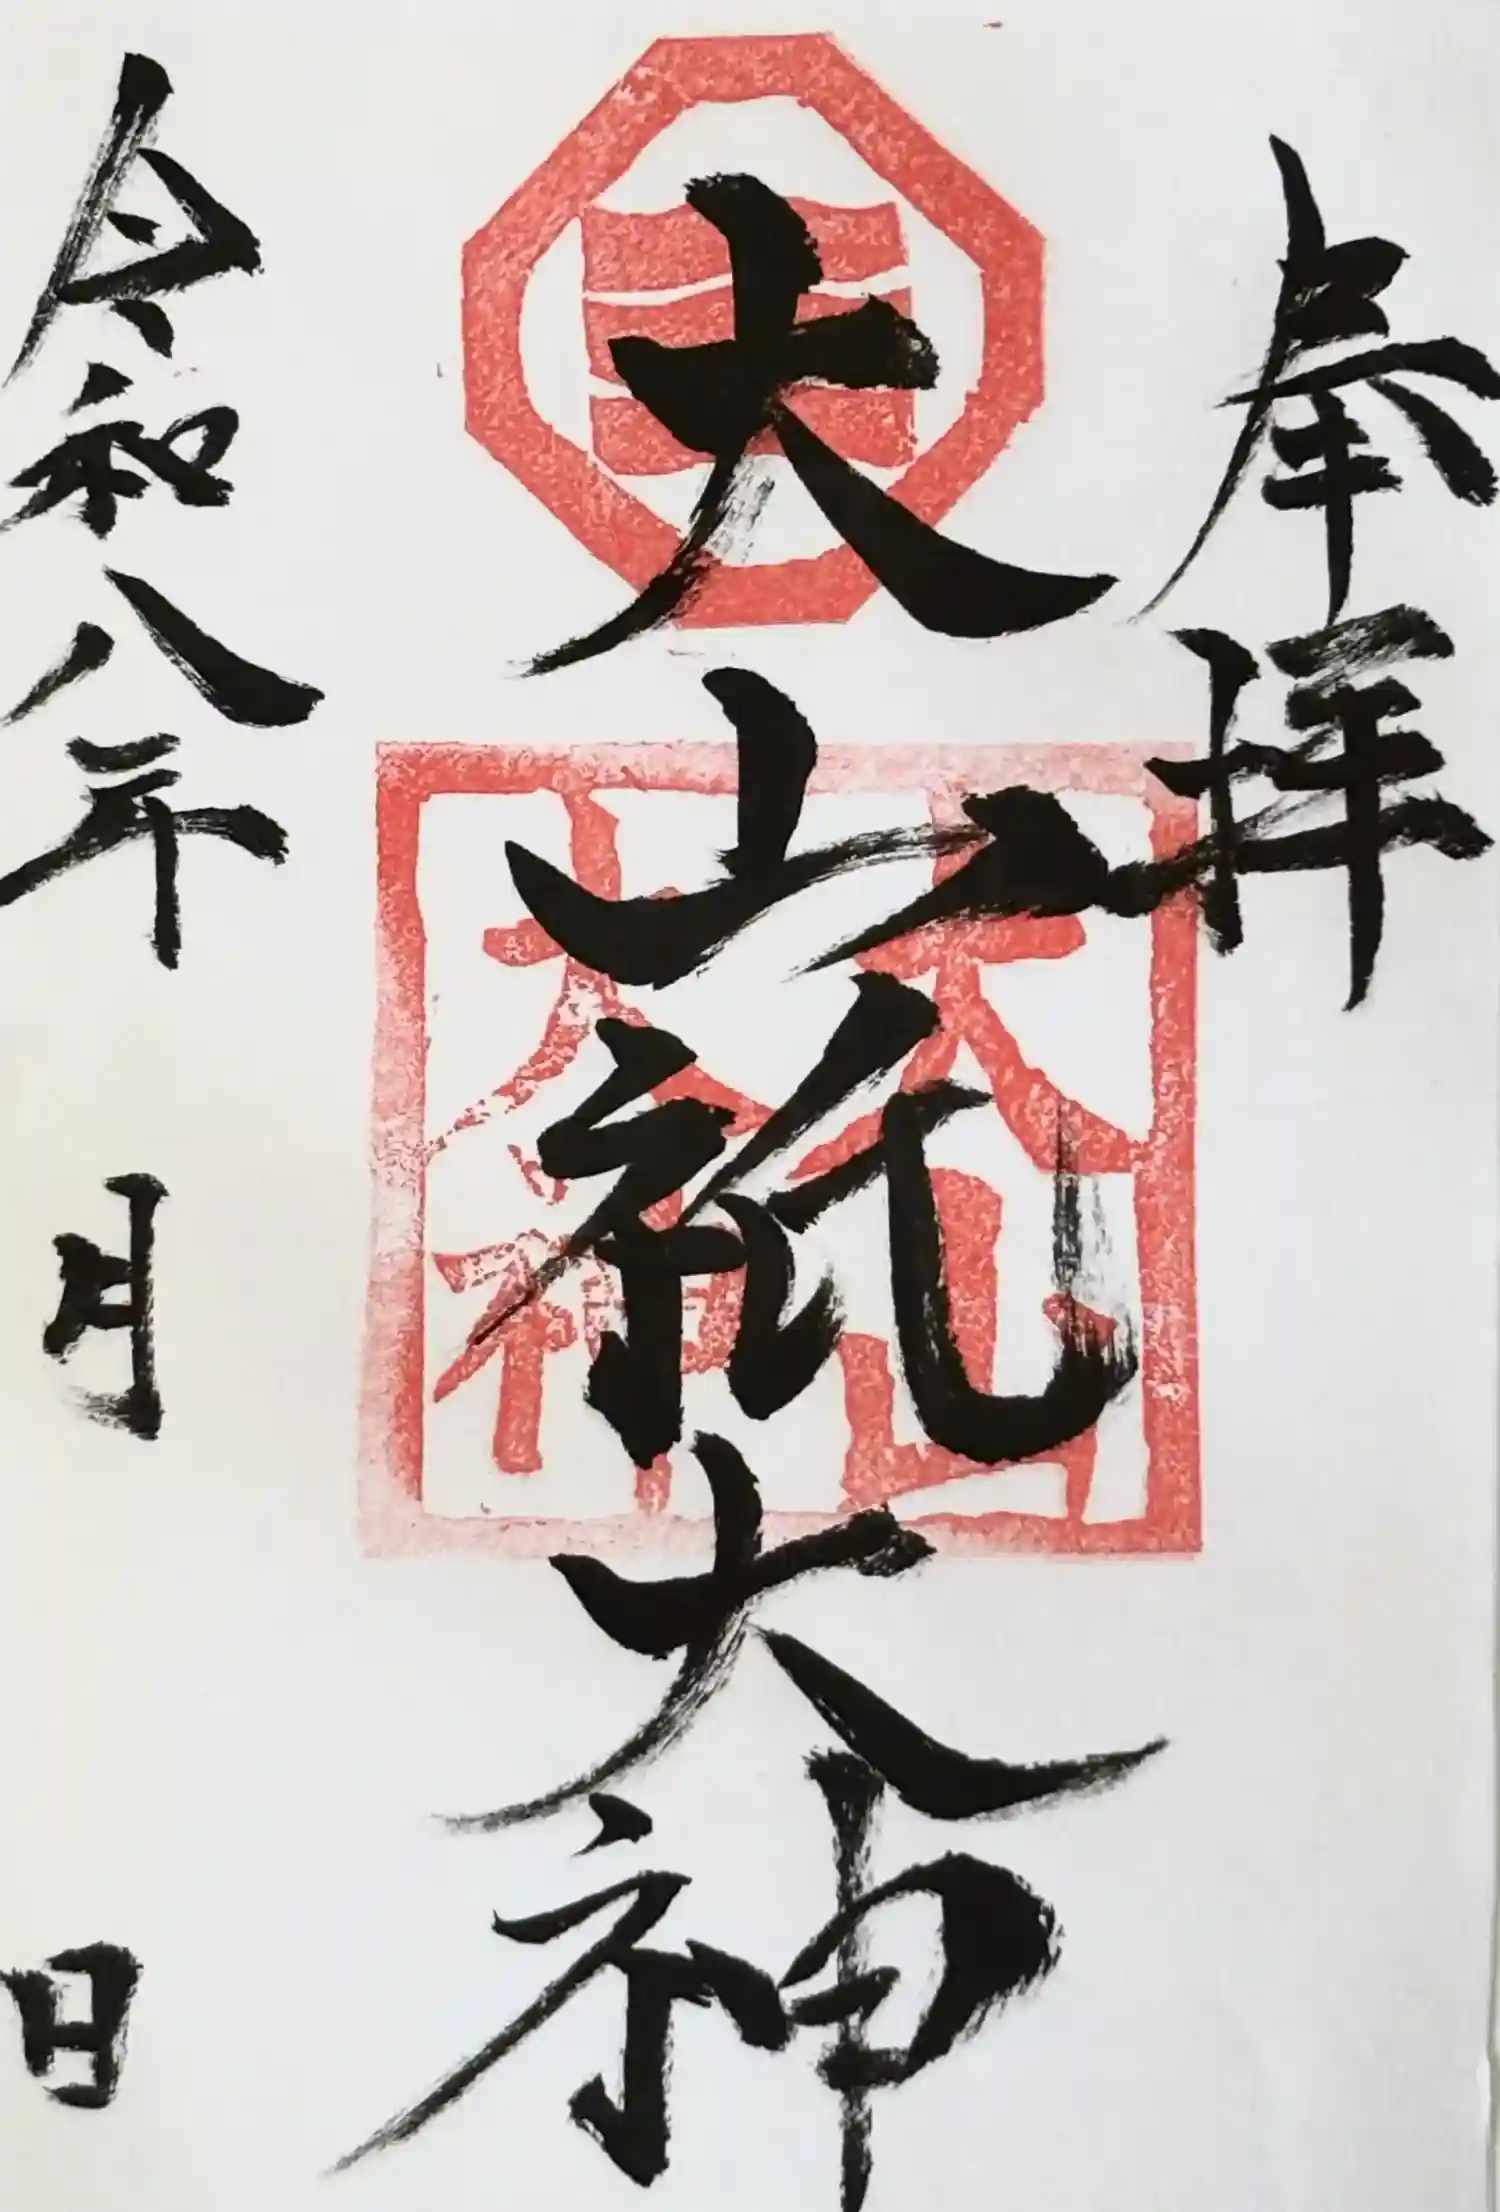 奉拝
大山祇大神
三
大山
大神
令和八年 月 日